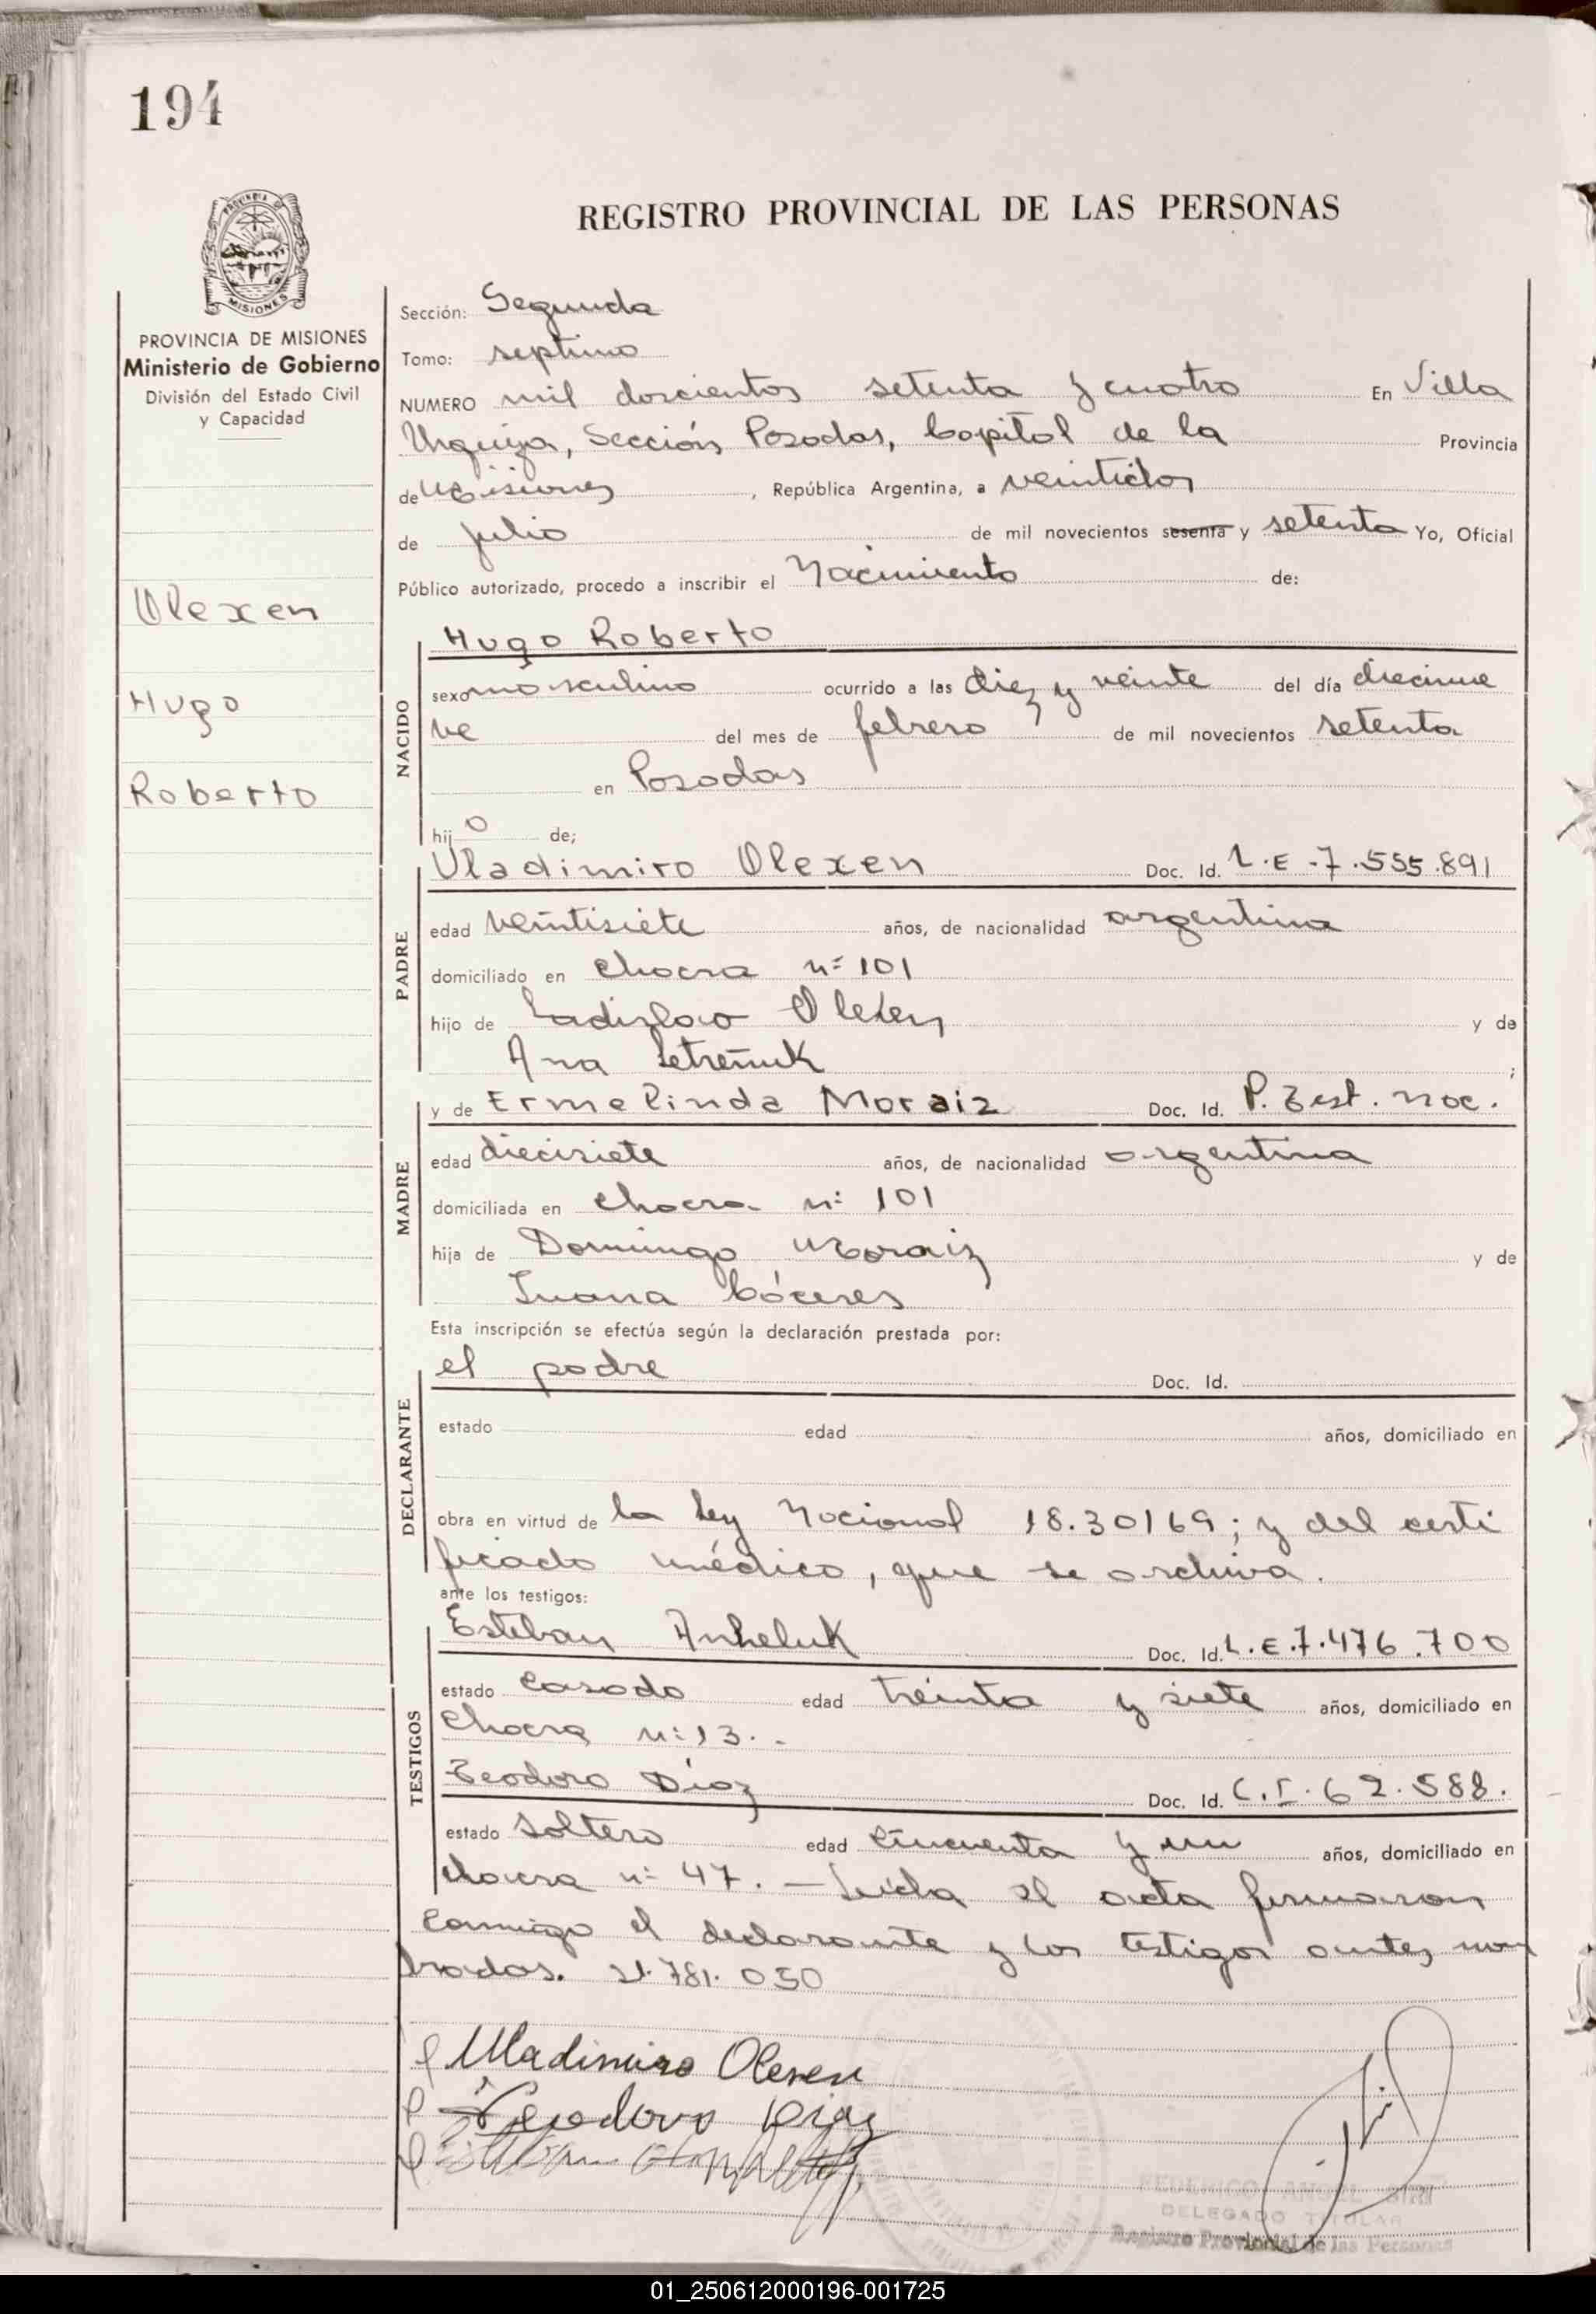 194
REGISTRO PROVINCIAL DE LAS PERSONAS
MISIONES
PROVINCIA DE MISIONES
Ministerio de Gobierno
División del Estado Civil
y Capacidad
Olexen
Hugo
Roberto
Sección: Segunda
Tomo: septimo
NUMERO mil doscientos setenta y cuatro En Villa
Urquiza, Sección Posadas, Capital de la Provincia
de Misiones, República Argentina, a veintidos
de julio de mil novecientos sesenta y setenta Yo, Oficial
Público autorizado, procedo a inscribir el Nacimiento de:
NACIDO
Hugo Roberto
sexo masculino ocurrido a las diez y veinte del día diecinue
ve del mes de febrero de mil novecientos setenta
en Posadas
hijo de;
PADRE
Vladimiro Olexen Doc. Id. L.E.7.555.891
edad veintisiete años, de nacionalidad argentina
domiciliado en chacra nº 101
hijo de Ladislao Olexen y de
Ana Petreñuk ;
MADRE
y de Ermelinda Moraiz Doc. Id. P. Test. nac.
edad diecisiete años, de nacionalidad argentina
domiciliada en chacra nº 101
hija de Domingo Moraiz y de
Juana Cáceres
Esta inscripción se efectúa según la declaración prestada por:
DECLARANTE
el padre Doc. Id.
estado edad años, domiciliado en
obra en virtud de la Ley Nacional 18.30169; y del certi
ficado médico, que se archiva.
ante los testigos:
TESTIGOS
Esteban Anheluk Doc. Id. L.E.7.476.700
estado casado edad treinta y siete años, domiciliado en
chacra nº 13.-
Teodoro Díaz Doc. Id. C.I.62.588.
estado soltero edad cincuenta y un años, domiciliado en
chacra nº 47. — Leída el acta firmaron
conmigo el declarante y los testigos antes nom
brados. 21.781.050
Vladimiro Olexen
Teodoro Diaz
FEDERICO ANGEL
DELEGADO TITULAR
Registro Provincial de las Personas
01_250612000196-001725